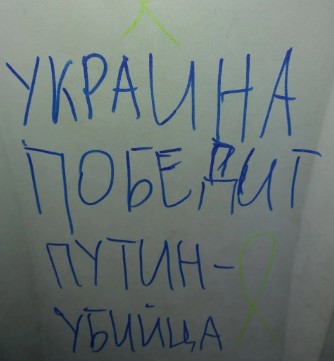 УКРАИНА
ПОБЕДИТ
ПУТИН-
УБИЙЦА